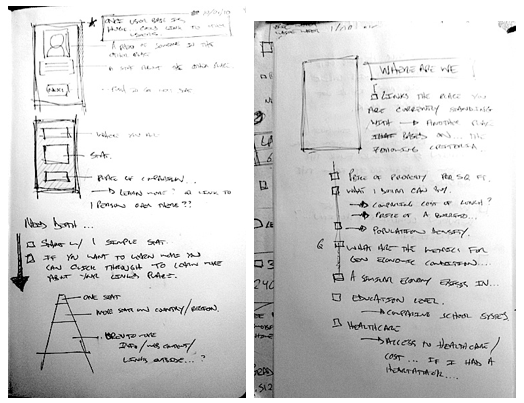 ONCE USER BASE IS
LINK TO OTHER
A PHOTO OF SOMEONE IN THE
OTHER PLACE
A STAT ABOUT THE OTHER PLACE.
WHERE YOU ARE
STAT.
PLACE OF COMPARISON.
LEARN MORE? OR LINK TO
1 PERSON OVER THERE??
NEED DEPTH...
START W/ 1 SIMPLE STAT.
IF YOU WANT TO LEARN MORE YOU
CAN CLICK THROUGH TO LEARN MORE
ABOUT YOUR LINKED PLACE.
ONE STAT
MORE STATS ON COUNTRY/REGION.
OPEN TO MORE
INFO/WEB CONTENT/
LINKS OUTSIDE...?
WHERE ARE WE
LINKS THE PLACE YOU
ARE CURRENTLY STANDING
WITH ANOTHER PLACE
THAT BASED ON... THE
FOLLOWING CRITERIA...
PRICE OF PROPERTY PER SQ FT.
WHAT 1 DOLLAR CAN BUY.
COMPARING COST OF LUNCH?
PRICE OF A BURGER...
POPULATION DENSITY.
6 WHAT ARE THE METRICS FOR
GEN ECONOMIC CONDITION...
A SIMILAR ECONOMY EXISTS IN...
EDUCATION LEVEL.
COMPARING SCHOOL SYSTEMS
HEALTHCARE
ACCESS TO HEALTHCARE/
COST... IF I HAD A
HEARTATTACK....